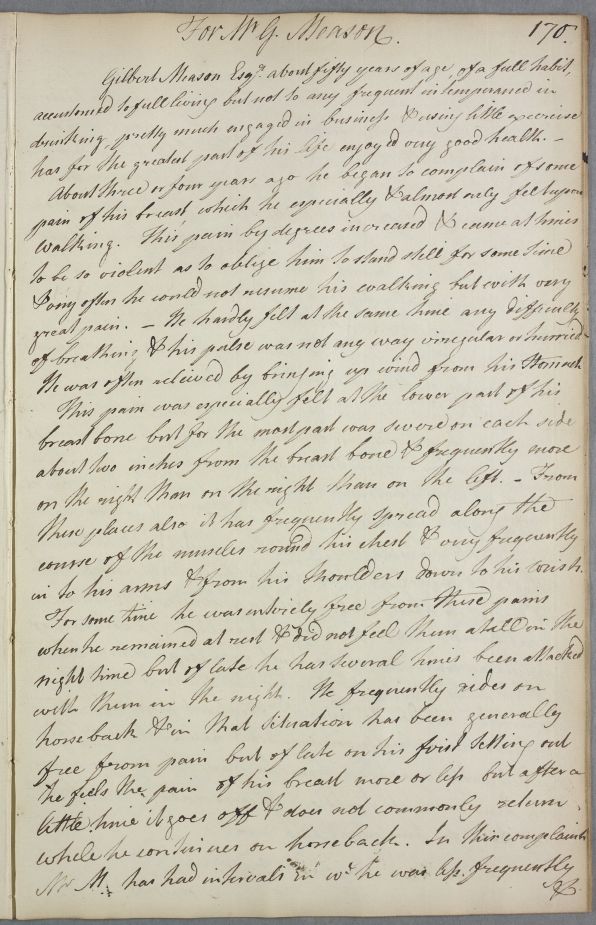 For Mr. G. Meason.
170.
Gilbert Meason Esqr. about fifty years of age, of a full habit,
accustomed to full living but not to any frequent intemperance in
drinking, pretty much engaged in business & using little exercise
has for the greatest part of his life enjoyed very good health. –
About three or four years ago he began to complain of some
pain of his breast which he especially & almost only felt upon
walking. This pain by degrees increased & came at times
to be so violent as to oblige him to stand still for some time
& very often he could not resume his walking but with very
great pain. – He hardly felt at the same time any difficulty
of breathing & his pulse was not any way irregular or hurried
He was often relieved by bringing up wind from his Stomach
This pain was especially felt at the lower part of his
breast bone but for the most part was severe on each side
about two inches from the breast bone & frequently more
on the right than on the right than on the left. – From
these places also it has frequently spread along the
course of the muscles round his chest & very frequently
in to his arms & from his shoulders down to his wrists.
For some time he was entirely free from these pains
when he remained at rest & did not feel them at all in the
night time but of late he has several times been attacked
with them in the night. He frequently rides on
horseback & in that situation has been generally
free from pain but of late on his first setting out
he feels the pain of his breast more or less but after a
little time it goes off & does not commonly return
while he continues on horseback. In this complaint
Mr M. has had intervals in wc. he was less frequently
&